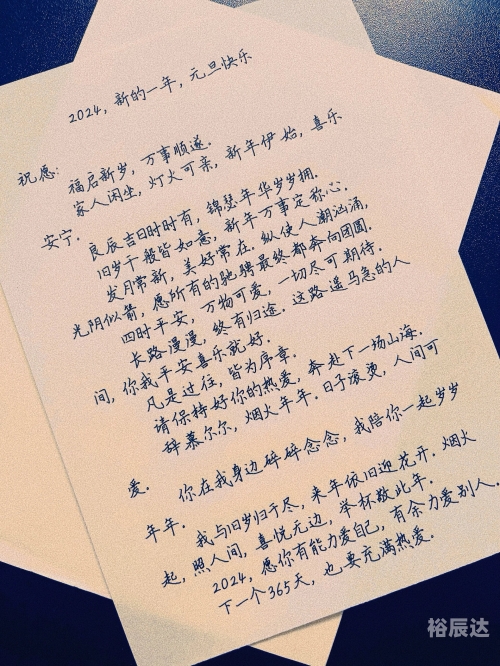 2024，新的一年，元旦快乐
祝愿：福启新岁，万事顺遂．
家人闲坐，灯火可亲，新年伊始，喜乐
安宁．
良辰吉日时时有，锦瑟年华岁岁拥．
旧岁千般皆如意，新年万事定称心．
岁月常新，美好常在．纵使人潮汹涌，
光阴似箭，愿所有的驰骋最终都奔向团圆．
四时平安，万物可爱，一切尽可期待．
长路漫漫，终有归途．这路遥马急的人
间，你我平安喜乐就好．
凡是过往，皆为序章．
请保持好你的热爱，奔赴下一场山海．
辞慕尔尔，烟火年年．日子滚烫，人间可
爱．
你在我身边碎碎念念，我陪你一起岁岁
年年．
我与旧岁归于尽，来年依旧迎花开．烟火
起，照人间，喜悦无边，举杯敬此年．
2024，愿你有能力爱自己，有余力爱别人．
下一个365天，也要充满热爱．
裕辰达